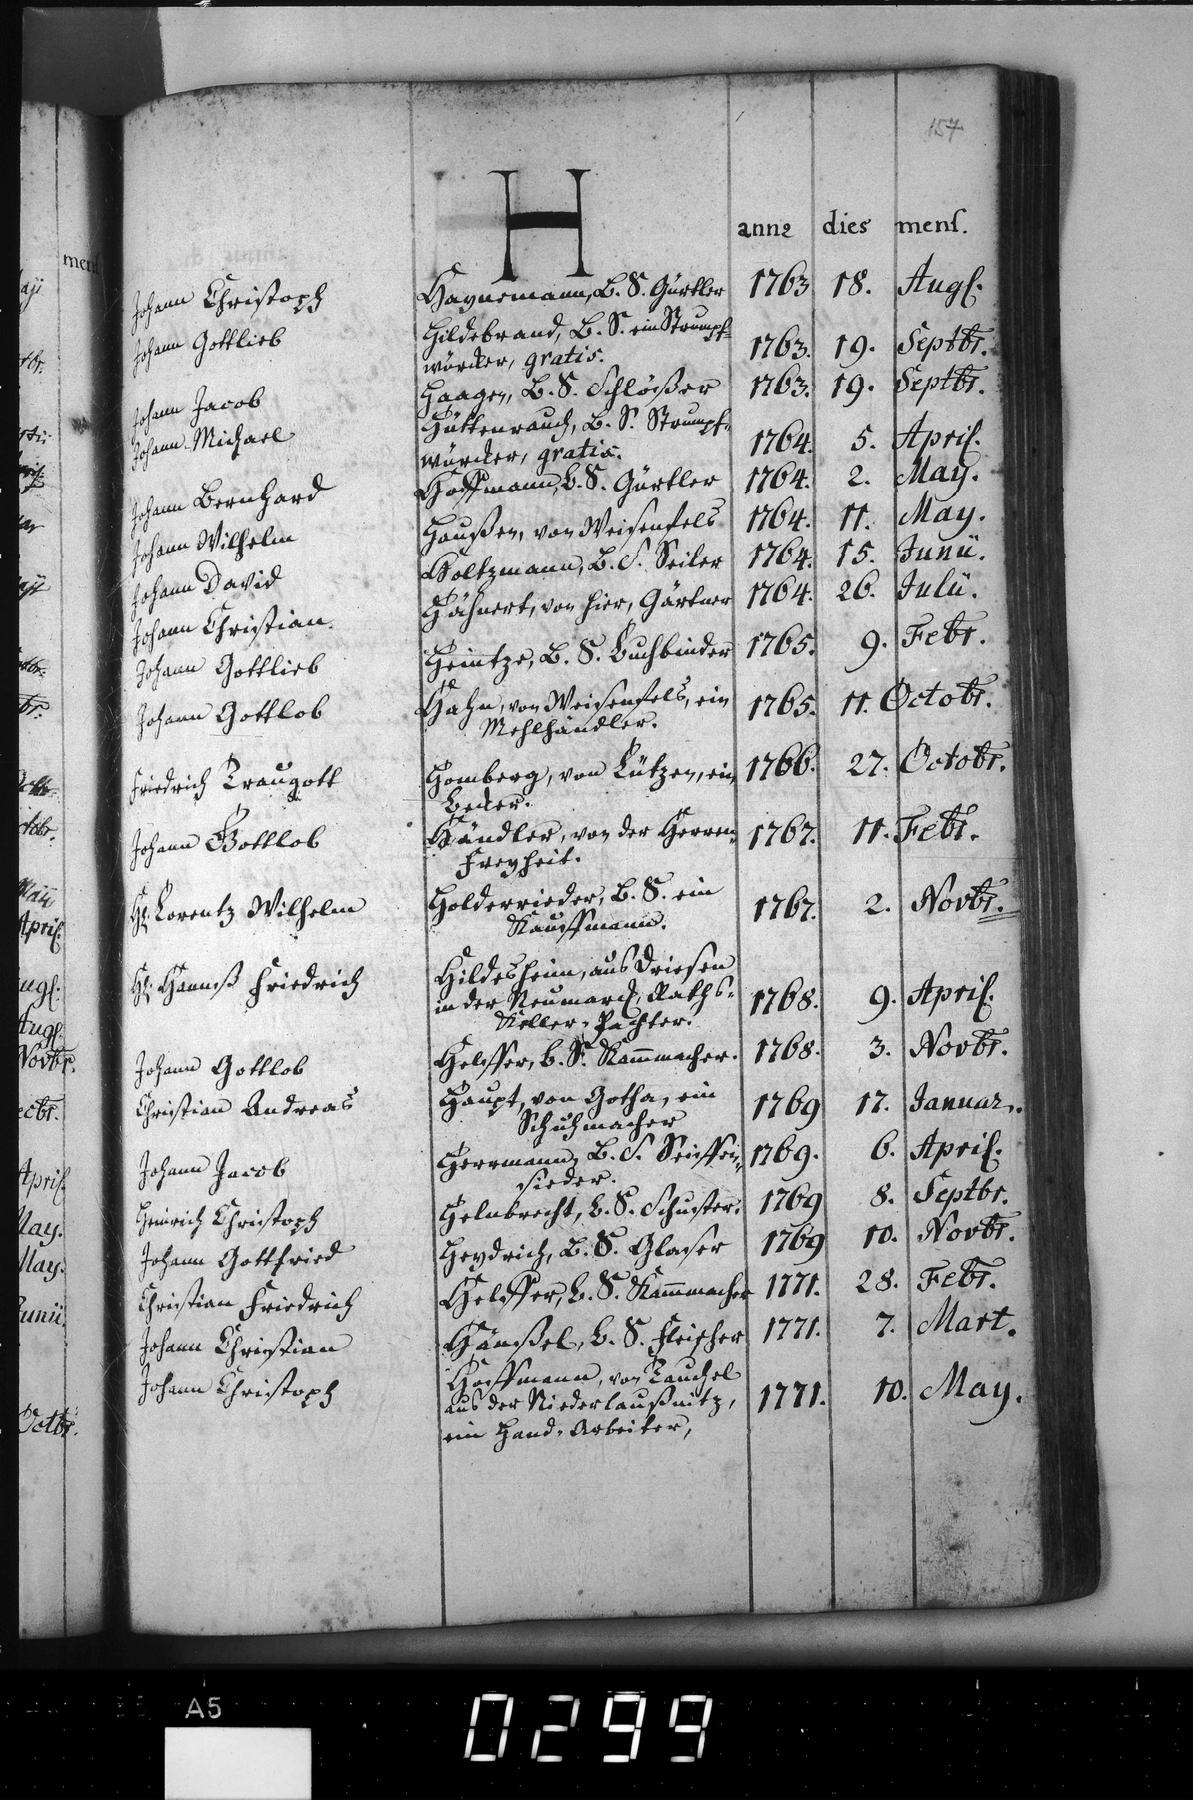 157
H
anno dies mens.
Johann Christoph Haynemann, B. S. Gürtler 1763 18. Aug.
Johann Gottlieb Hildebrand, B. S. ein Strumpf-
würcker, gratis. 1763. 19. Septbr.
Johann Jacob Haagen, B. S. Schlößer 1763. 19. Septbr.
Johann Michael Hüttenrauch, B. S. Strumpf-
würcker, gratis. 1764. 5. April.
Johann Bernhard Hoffmann, B. S. Gürtler 1764. 2. May.
Johann Wilhelm Haußen, von Weisenfels 1764. 11. May.
Johann David Holtzmann, B. S. Seiler 1764. 15. Junii.
Johann Christian Hähnert, von hier, Gärtner 1764. 26. Julii.
Johann Gottlieb Heintze, B. S. Buchbinder 1765. 9. Febr.
Johann Gottlob Hahn, von Weisenfels, ein
Mehlhändler. 1765. 11. Octobr.
Friedrich Traugott Homberg, von Lützen, ein
Becker. 1766. 27. Octobr.
Johann Gottlob Händler, von der Herren-
Freyheit. 1767. 11. Febr.
H: Lorentz Wilhelm Holderrieder, B. S. ein
Kauffmann. 1767. 2. Novbr.
H: Hannß Friedrich Hildesheim, aus Driesen
in der Neumarck, Raths-
Keller-Pachter. 1768. 9. April.
Johann Gottlob Helffer, B. S. Kammacher. 1768. 3. Novbr.
Christian Andreas Haupt, von Gotha, ein
Schuhmacher 1769 17. Januar.
Johann Jacob Herrmann, B. S. Seiffen-
sieder. 1769. 6. April.
Heinrich Christoph Helmbrecht, B. S. Schuster. 1769 8. Septbr.
Johann Gottfried Heydrich, B. S. Glaser 1769 10. Novbr.
Christian Friedrich Helffer, B. S. Kammacher 1771. 28. Febr.
Johann Christian Hänßel, B. S. Fleischer 1771. 7. Mart.
Johann Christoph Hoffmann, von Tauchel
aus der Niederlaußnitz,
ein Hand-Arbeiter, 1771. 10. May.
A5
0299